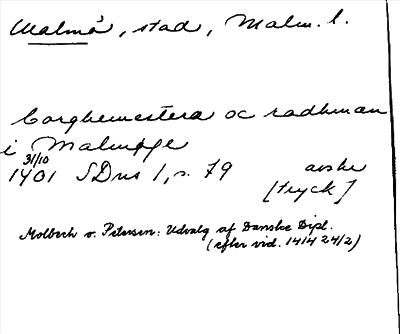 Malmö, stad, Malm. l.
borghemestera oc radhman
i Malmøge
31/10
1401 SDns 1, s. 79 avskr
[tryck]
Molbech o. Petersen: Udvalg af Danske Dipl.
(efter vid. 1414 24/2)